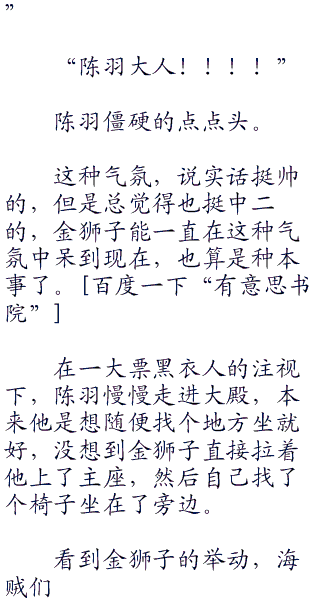 ”
“陈羽大人！！！！”
陈羽僵硬的点点头。
这种气氛，说实话挺帅
的，但是总觉得也挺中二
的，金狮子能一直在这种气
氛中呆到现在，也算是种本
事了。[百度一下“有意思书
院”]
在一大票黑衣人的注视
下，陈羽慢慢走进大殿，本
来他是想随便找个地方坐就
好，没想到金狮子直接拉着
他上了主座，然后自己找了
个椅子坐在了旁边。
看到金狮子的举动，海
贼们